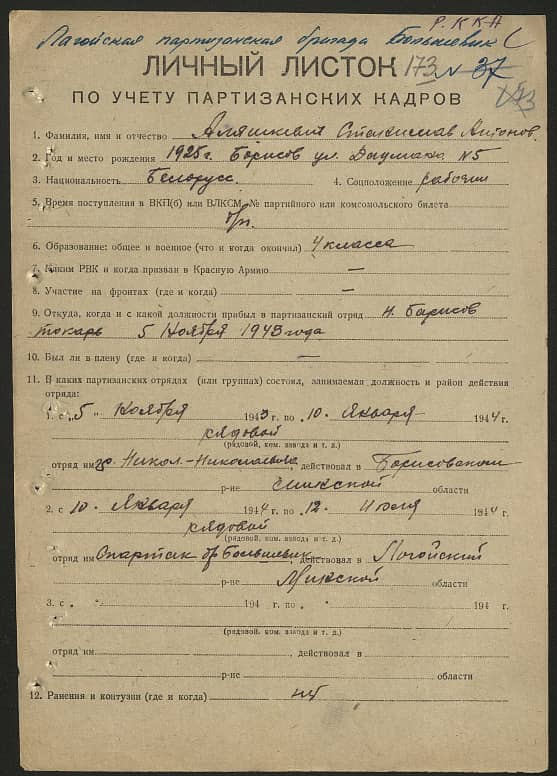 РККА
Лагойская партизанская бригада Большевик
ЛИЧНЫЙ ЛИСТОК 173 N 37
ПО УЧЕТУ ПАРТИЗАНСКИХ КАДРОВ
1. Фамилия, имя и отчество Аляшкевич Станислав Антонов.
2. Год и место рождения 1925 г. Борисов ул. N 5
3. Национальность Белорусс. 4. Соцположение рабочий
5. Время поступления в ВКП(б) или ВЛКСМ, № партийного или комсомольского билета
б/п.
6. Образование: общее и военное (что и когда окончил) 4 класса
7. Каким РВК и когда призван в Красную Армию —
8. Участие на фронтах (где и когда) —
9. Откуда, когда и с какой должности прибыл в партизанский отряд Борисов
токарь 5 Ноября 1943 года
10. Был ли в плену (где и когда) —
11. В каких партизанских отрядах (или группах) состоял, занимаемая должность и район действия
отряда:
1. с „5 " Ноября 1943 г. по „10. Января 1944 г.
рядовой
(рядовой, ком. взвода и т. д.)
отряд им , действовал в Борисовском
р-не области
2. с „10. Января 1944 г. по „12. Июля 1944 г.
рядовой
(рядовой, ком. взвода и т. д.)
отряд им Спартак бр. Большевик действовал в Логойский
р-не Минской области
3. с „ " 194 г. по „ " 194 г.
(рядовой, ком. взвода и т. д.)
отряд им , действовал в
р-не области
12. Ранения и контузии (где и когда) нет